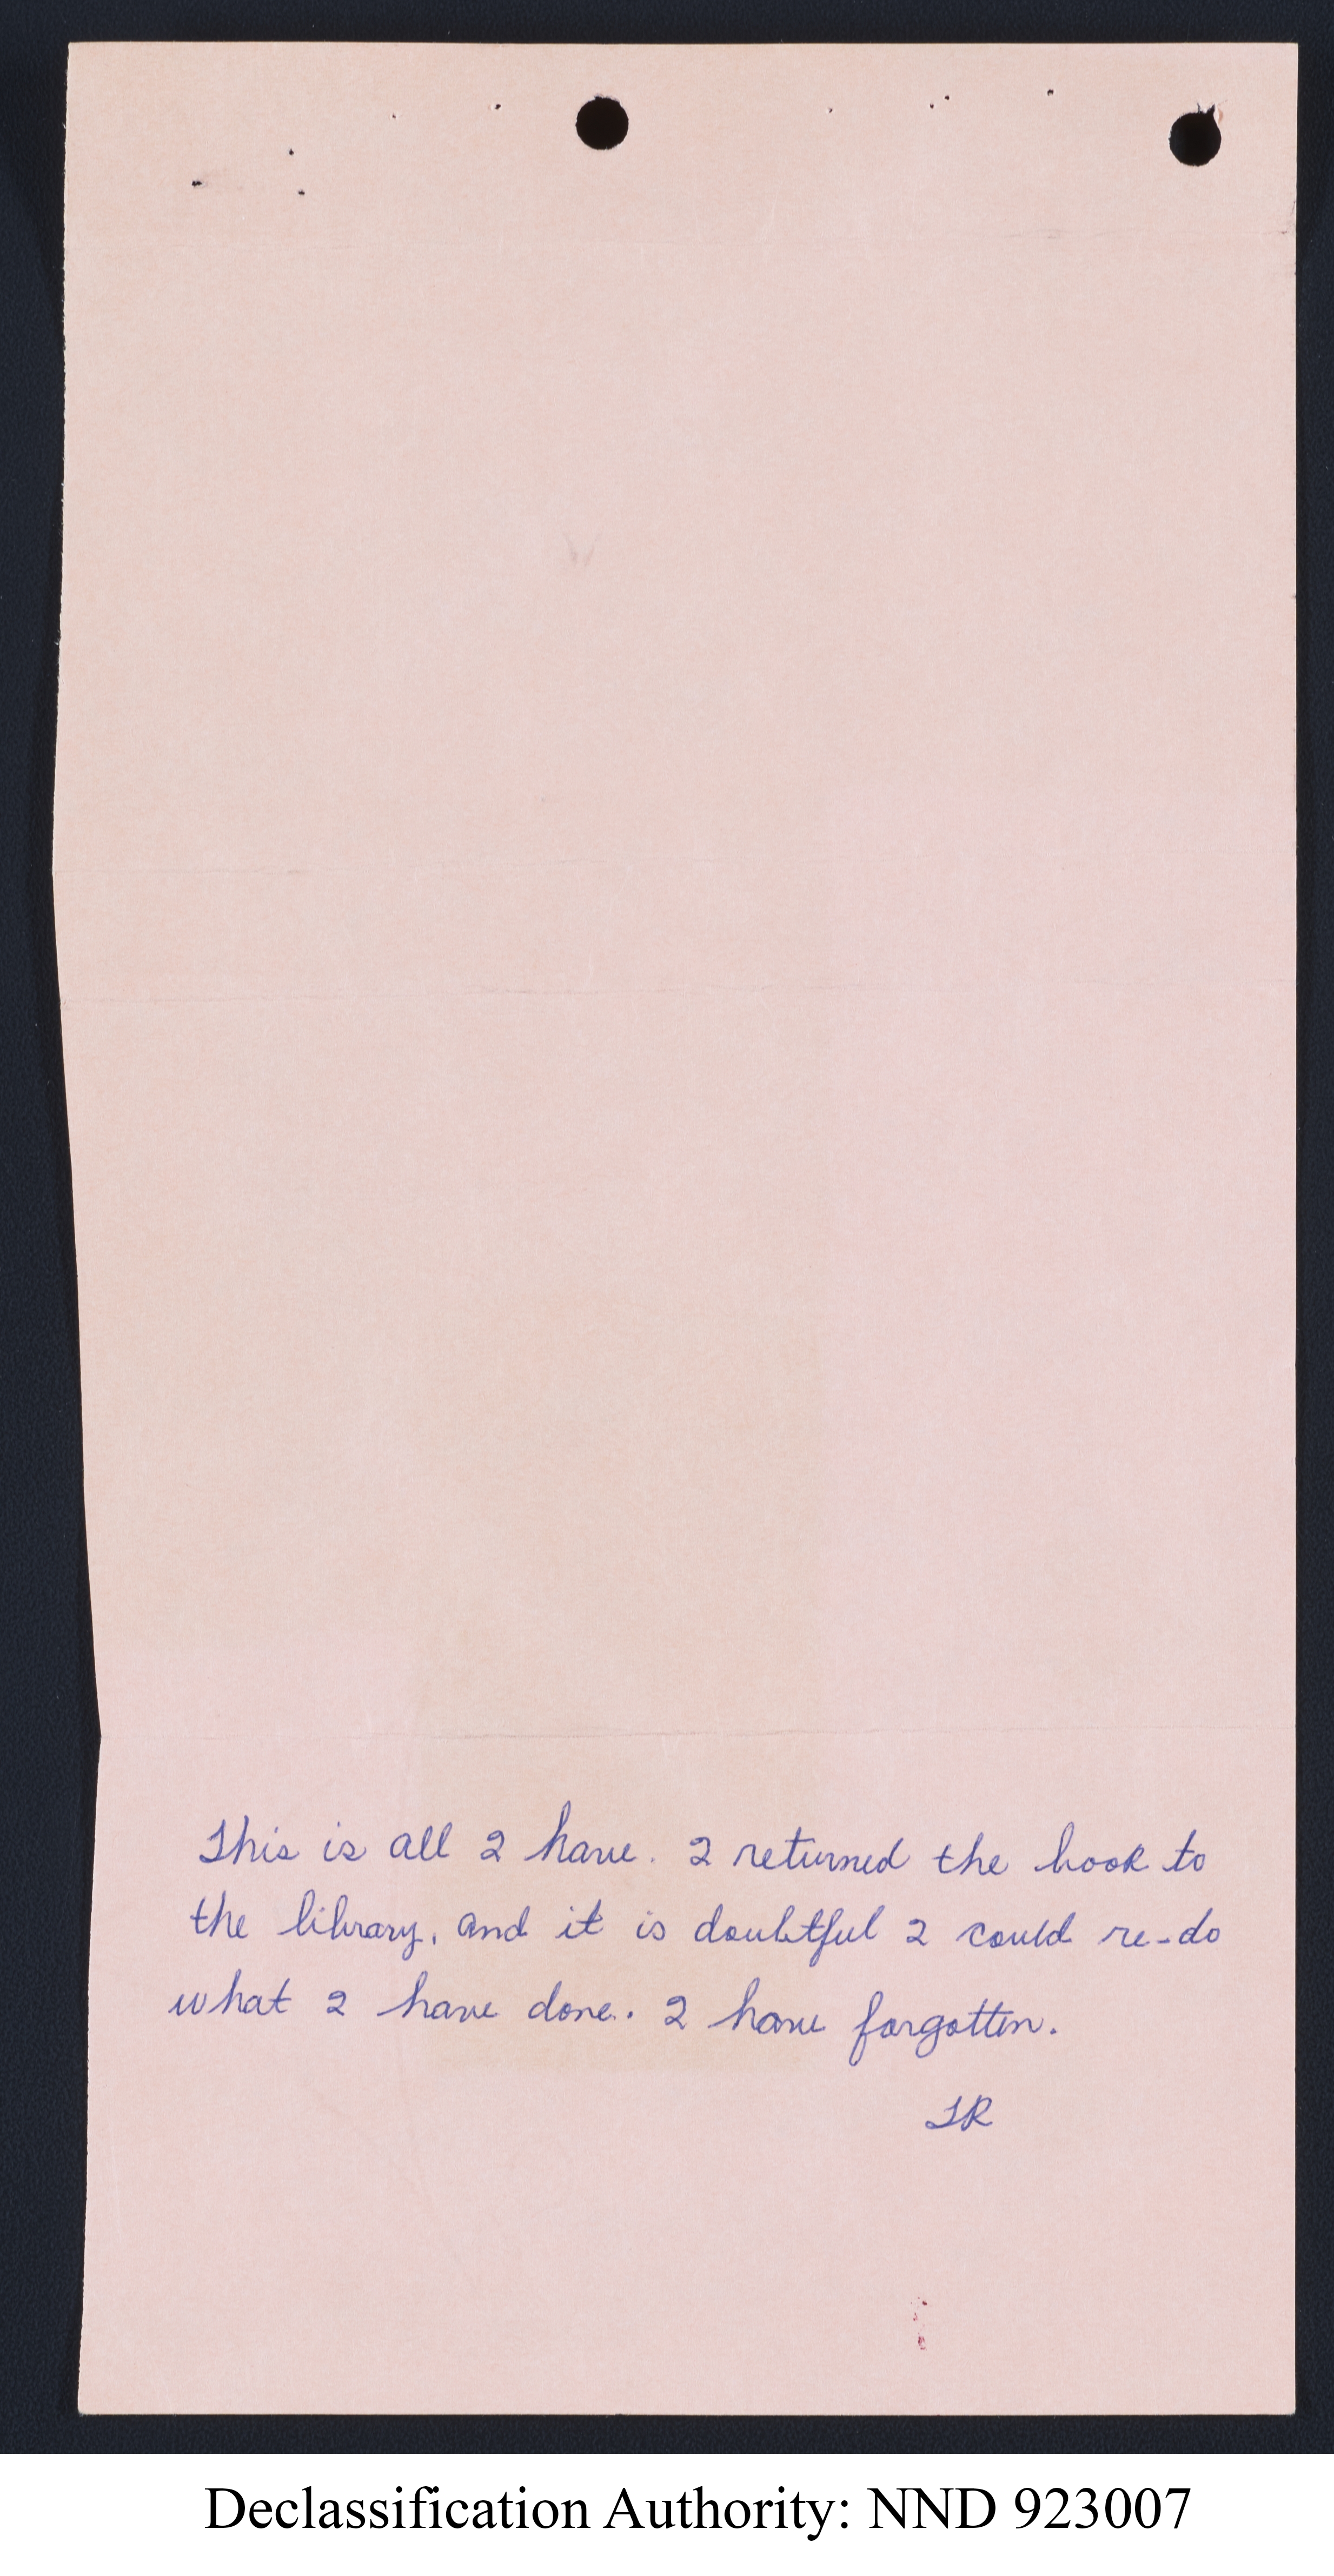 This is all I have. I returned the book to
the library, and it is doubtful I could re-do
what I have done. I have forgotten.
TR
Declassification Authority: NND 923007